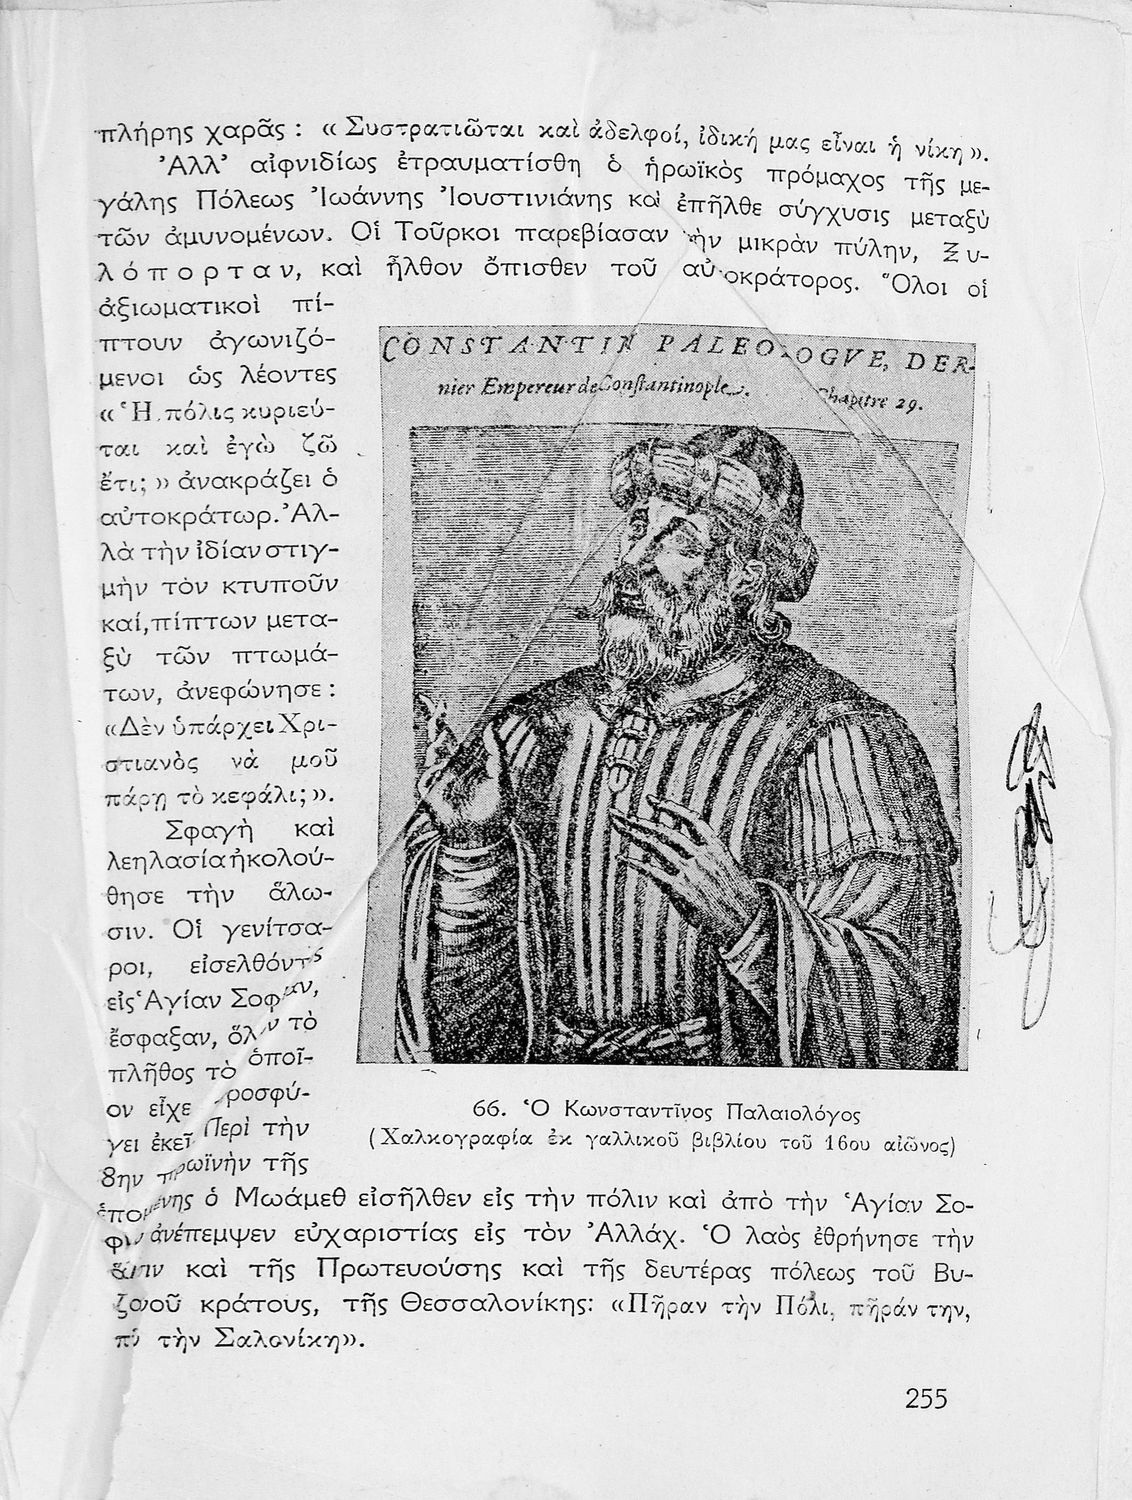 πλήρης χαρᾶς : « Συστρατιῶται καὶ ἀδελφοί, ἰδική μας εἶναι ἡ νίκη ».
Ἀλλ’ αἰφνιδίως ἐτραυματίσθη ὁ ἡρωϊκὸς πρόμαχος τῆς με-
γάλης Πόλεως Ἰωάννης Ἰουστινιάνης καὶ ἐπῆλθε σύγχυσις μεταξὺ
τῶν ἀμυνομένων. Οἱ Τοῦρκοι παρεβίασαν τὴν μικρὰν πύλην, Ξυ-
λόπορταν, καὶ ἦλθον ὄπισθεν τοῦ αὐτοκράτορος. Ὅλοι οἱ
ἀξιωματικοὶ πί-
πτουν ἀγωνιζό-
μενοι ὡς λέοντες
« Ἡ πόλις κυριεύ-
ται καὶ ἐγὼ ζῶ
ἔτι; » ἀνακράζει ὁ
αὐτοκράτωρ. Ἀλ-
λὰ τὴν ἰδίαν στιγ-
μὴν τὸν κτυποῦν
καί, πίπτων μετα-
ξὺ τῶν πτωμά-
των, ἀνεφώνησε :
«Δὲν ὑπάρχει Χρι-
στιανὸς νὰ μοῦ
πάρῃ τὸ κεφάλι; ».
Σφαγὴ καὶ
λεηλασία ἠκολού-
θησε τὴν ἅλω-
σιν. Οἱ γενίτσα-
ροι, εἰσελθόντες
εἰς Ἁγίαν Σοφίαν,
ἔσφαξαν, ὅλον τὸ
πλῆθος τὸ ὁποῖ-
ον εἶχε προσφύ-
γει ἐκεῖ Περὶ τὴν
8ην πρωϊνὴν τῆς
ἑπομένης ὁ Μωάμεθ εἰσῆλθεν εἰς τὴν πόλιν καὶ ἀπὸ τὴν Ἁγίαν Σο-
φιν ἀνέπεμψεν εὐχαριστίας εἰς τὸν Ἀλλάχ. Ὁ λαὸς ἐθρήνησε τὴν
καὶ τῆς Πρωτευούσης καὶ τῆς δευτέρας πόλεως τοῦ Βυ-
κράτους, τῆς Θεσσαλονίκης: «Πῆραν τὴν Πόλι, πῆράν την,
τὴν Σαλονίκη».
CONSTANTIN PALEOLOGVE, DER-
nier Empereur de Constantinople.
Chapitre 29.
66. Ὁ Κωνσταντῖνος Παλαιολόγος
(Χαλκογραφία ἐκ γαλλικοῦ βιβλίου τοῦ 16ου αἰῶνος)
255